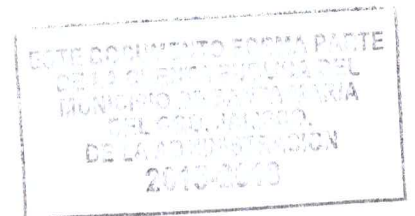 ESTE DOCUMENTO FORMA PARTE
DE LA CUENTA PUBLICA DEL
MUNICIPIO DE SANTA MARIA
DEL ORO, JALISCO,
DE LA ADMINISTRACION